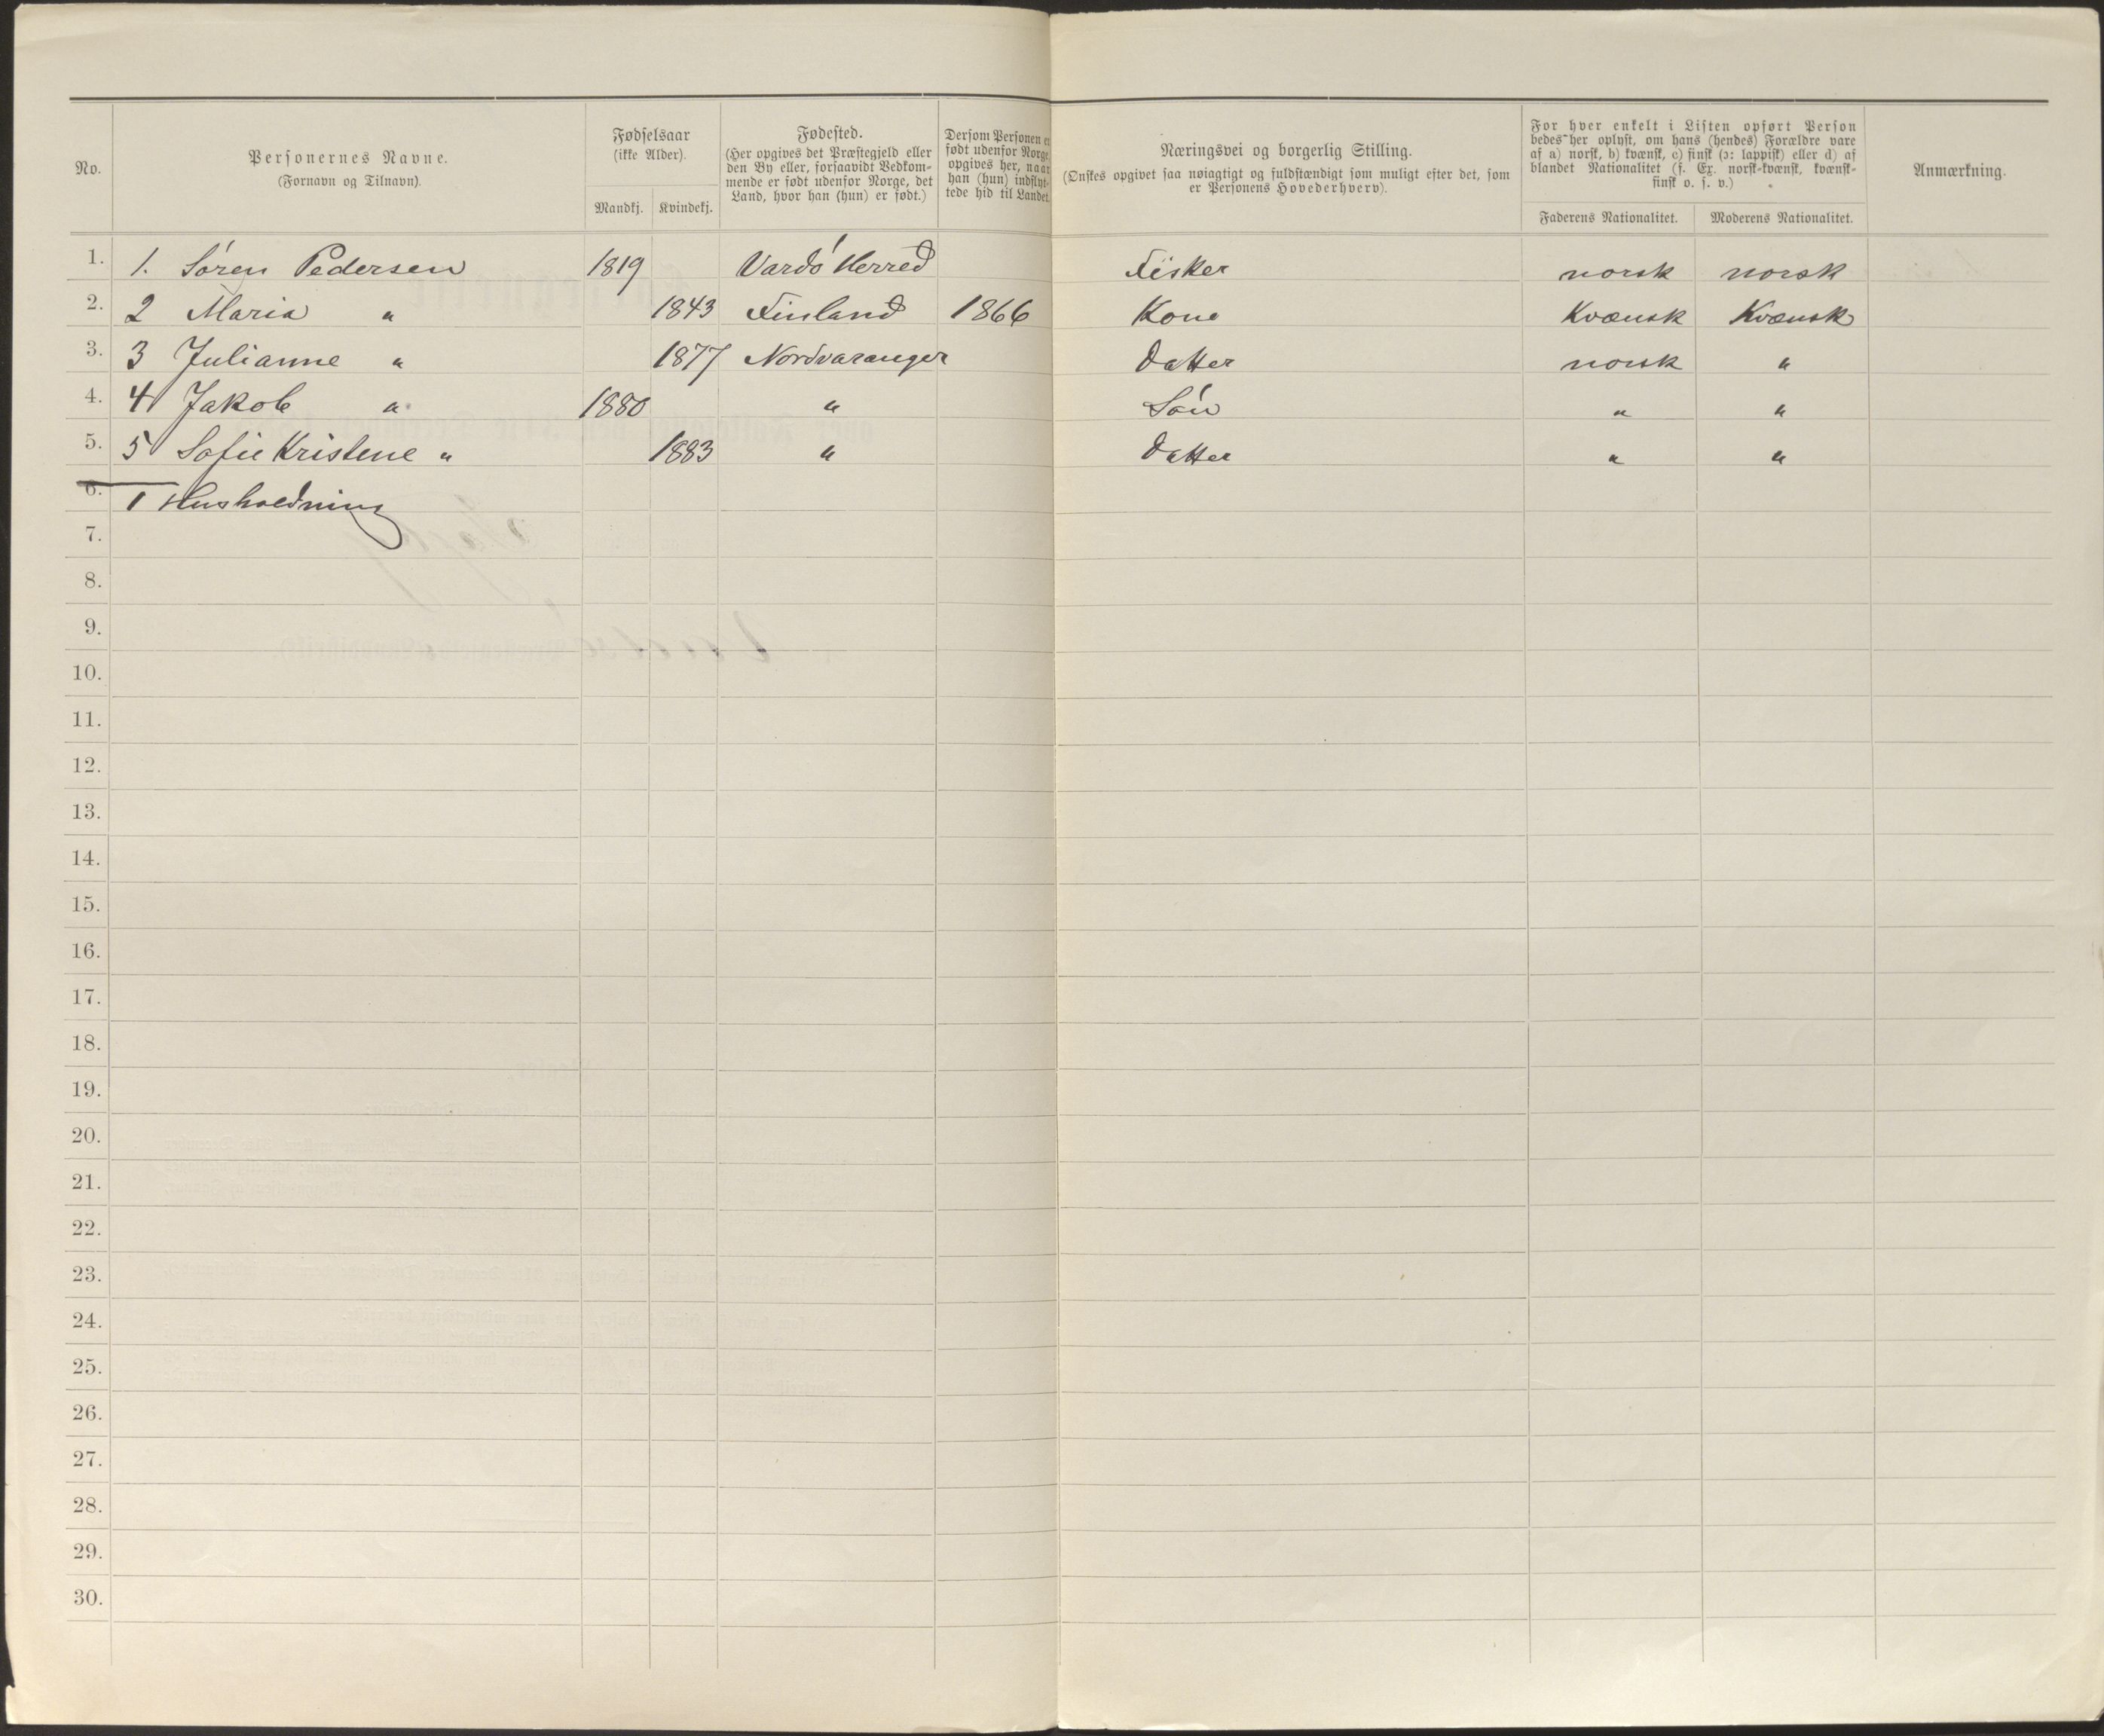 No.
Personernes Navne.
(Fornavn og Tilnavn).
Fødselsaar
(ikke Alder).
Mandkj. Kvindekj.
Fødested.
(Her opgives det Præstegjeld eller
den By eller, forsaavidt Vedkom-
mende er født udenfor Norge, det
Land, hvor han (hun) er født.)
Dersom Personen er
født udenfor Norge,
opgives her, naar
han (hun) indflyt-
tede hid til Landet.
Næringsvei og borgerlig Stilling.
(Ønskes opgivet saa nøiagtigt og fuldstændigt som muligt efter det, som
er Personens Hovederhverv).
For hver enkelt i Listen opført Person
bedes her oplyst, om hans (hendes) Forældre vare
af a) norsk, b) kvænsk, c) finsk (ɔ: lappisk) eller d) af
blandet Nationalitet (f. Ex. norsk-kvænsk, kvænsk-
finsk o. s. v.)
Faderens Nationalitet. Moderens Nationalitet.
Anmærkning.
1. 1. Sören Pedersen 1819 Vardö Herred Fisker norsk norsk
2. 2 Maria " 1843 Finland 1866 Kone Kvænsk Kvænsk
3. 3 Julianne " 1877 Nordvaranger Datter norsk "
4. 4 Jakob " 1880 " Sön " "
5. 5 Sofie Kristene " 1883 " Datter " "
6. 1 Husholdning
7.
8.
9.
10.
11.
12.
13.
14.
15.
16.
17.
18.
19.
20.
21.
22.
23.
24.
25.
26.
27.
28.
29.
30.